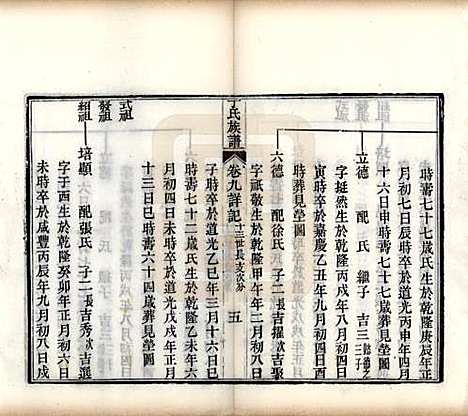 時壽七十七歲氏生於乾隆庚辰年正
月初九日時卒於道光丙申年四月
十六日申時壽七十七歲葬見塋圖
立德 配 氏 繼子 吉三
字挺然生於乾隆丙戌年八月初四日
寅時卒於嘉慶乙丑年九月初四日酉
時葬見塋圖
六德 配徐氏 子二長吉擢次吉聚
字祇敬生於乾隆甲午年二月初二日
子時卒於道光乙巳年三月十六日巳
時壽七十二歲氏生於乾隆乙未年
丁氏族譜 卷九詳記 十三世長支次分 五
月初四日未時卒於道光戊戌年正月
十三日巳時壽六十四歲葬見塋圖
式祖
發祖
紹祖
培顯 配張氏 子二長吉秀次吉選
字子酉生於乾隆癸卯年正月初六日
未時卒於咸豐丙辰年九月初八日戌